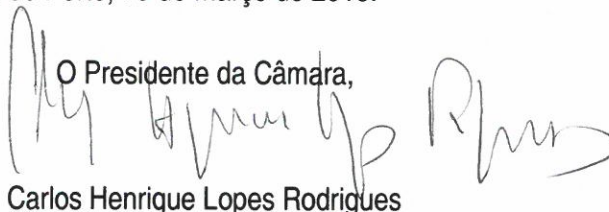 O Presidente da Câmara,
Carlos Henrique Lopes Rodrigues